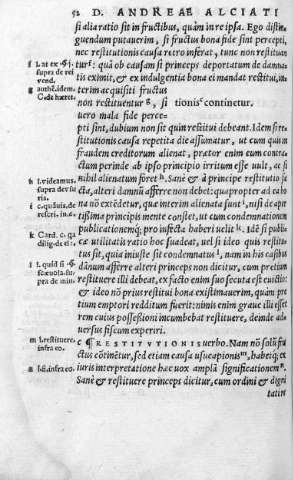 52 D. ANDREAE ALCIATI
si alia ratio sit in fructibus, quàm in re ipsa. Ego distin
guendum putauerim, si fructus bona fide sunt percepti,
nec restitutionis causa retro inferat, tunc non restituan
tur: quòd ob causam si princeps deportatum de damna
tis eximit, & ex indulgentia bona ei mandat restitui, in
terim acquisiti fructus
non restituentur g, si tionis cōtinetur.
uero mala fide perce-
pti sint, dubium non sit quin restitui debeant. Idem si re
stitutionis causa repetita die assumatur, ut cum quis in
fraudem creditorum alienat, prætor enim eum contra
ctum perinde ab ipso principio irritum esse uult, ac si
nihil alienatum foret h. Sanè & à principe restitutio fa
cta, alteri damnū afferre non debet: quapropter ad ea bo
na nō extēdetur, quæ interim alienata sunt i, nisi de aper
tissima principis mente constet, ut cum condemnationem
publicationemq́; pro infecta haberi uelit k. Id si publi
ca utilitatis ratio hoc suadeat, uel si ideo quis restitu-
tus sit, quia iniuste sit condemnatus l, nam in his casibus
dānum afferre alteri princeps non dicitur, cum pretium
restituere illi debeat, ex facto enim suo secuta est euictio:
& ideo nō prius restitui bona existimauerim, quàm pre
tium emptori redditum fuerit: nimis enim graue illi esset
rem cuius possessioni incumbebat restituere, deinde ad
uersus fiscum experiri.
c ¶ RESTITVTIONIS uerbo. Nam nō solū fru
ctus cōtinētur, sed etiam causa usucapionis m, habetq́; ex
iuris interpretatione hæc uox amplā significationem n.
Sanè & restituere princeps dicitur, cum ordini & digni
tatiɴ
supra de rei
uend.
l. uideamus.
supra de usu
ris.
k Card. c. 92
diligi.
m l. restituere,
infra eo.